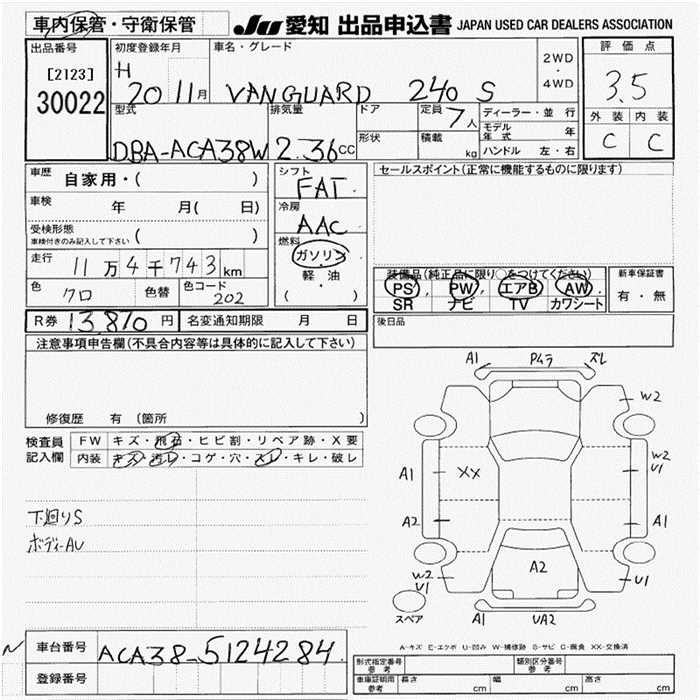 車内保管・守衛保管
JU 愛知 出品申込書 JAPAN USED CAR DEALERS ASSOCIATION
出品番号
[2123]
30022
初度登録年月
H 20 11月
車名・グレード
VANGUARD 240 S
2WD
・
4WD
評価点
3.5
外装 内装
C C
型式
DBA-ACA38W
排気量
2.36cc
ドア
形状
定員
7人
積載
kg
ディーラー・並行
モデル年式 年
ハンドル 左・右
車歴 自家用・( )
車検 年 月( 日)
受検形態
車検付きのみ記入して下さい ( )
走行 11万4千743km
色 クロ 色替 色コード 202
シフト
FAT
冷房
AAC
燃料
ガソリン
・
軽・油
( )
セールスポイント(正常に機能するものに限ります)
装備品(純正品に限り○をつけてください)
PS, PW, エアB, AW,
SR ナビ TV カワシート
新車保証書
有・無
R券 13,870円 名変通知期限 月 日
後日品
注意事項申告欄(不具合内容等は具体的に記入して下さい)
修復歴 有 〔箇所 〕
検査員
記入欄
FW キズ・飛石・ヒビ割・リペア跡・X要
内装 キズ・汚レ・コゲ・穴・スレ・キレ・破レ
下廻りS
ボディーAU
A1 Pムラ ズレ
W2
A1 XX W2
U1
A2 A1
W2
U1 A2 U1
スペア
A1 UA2
A-キズ E-エクボ U-凹み W-補修跡 S-サビ C-腐食 XX-交換済
車台番号 ACA38-5124284
登録番号
形式指定番号
参考
類別区分番号
参考
車庫証明用
参考
長さ cm 幅 cm 高さ cm